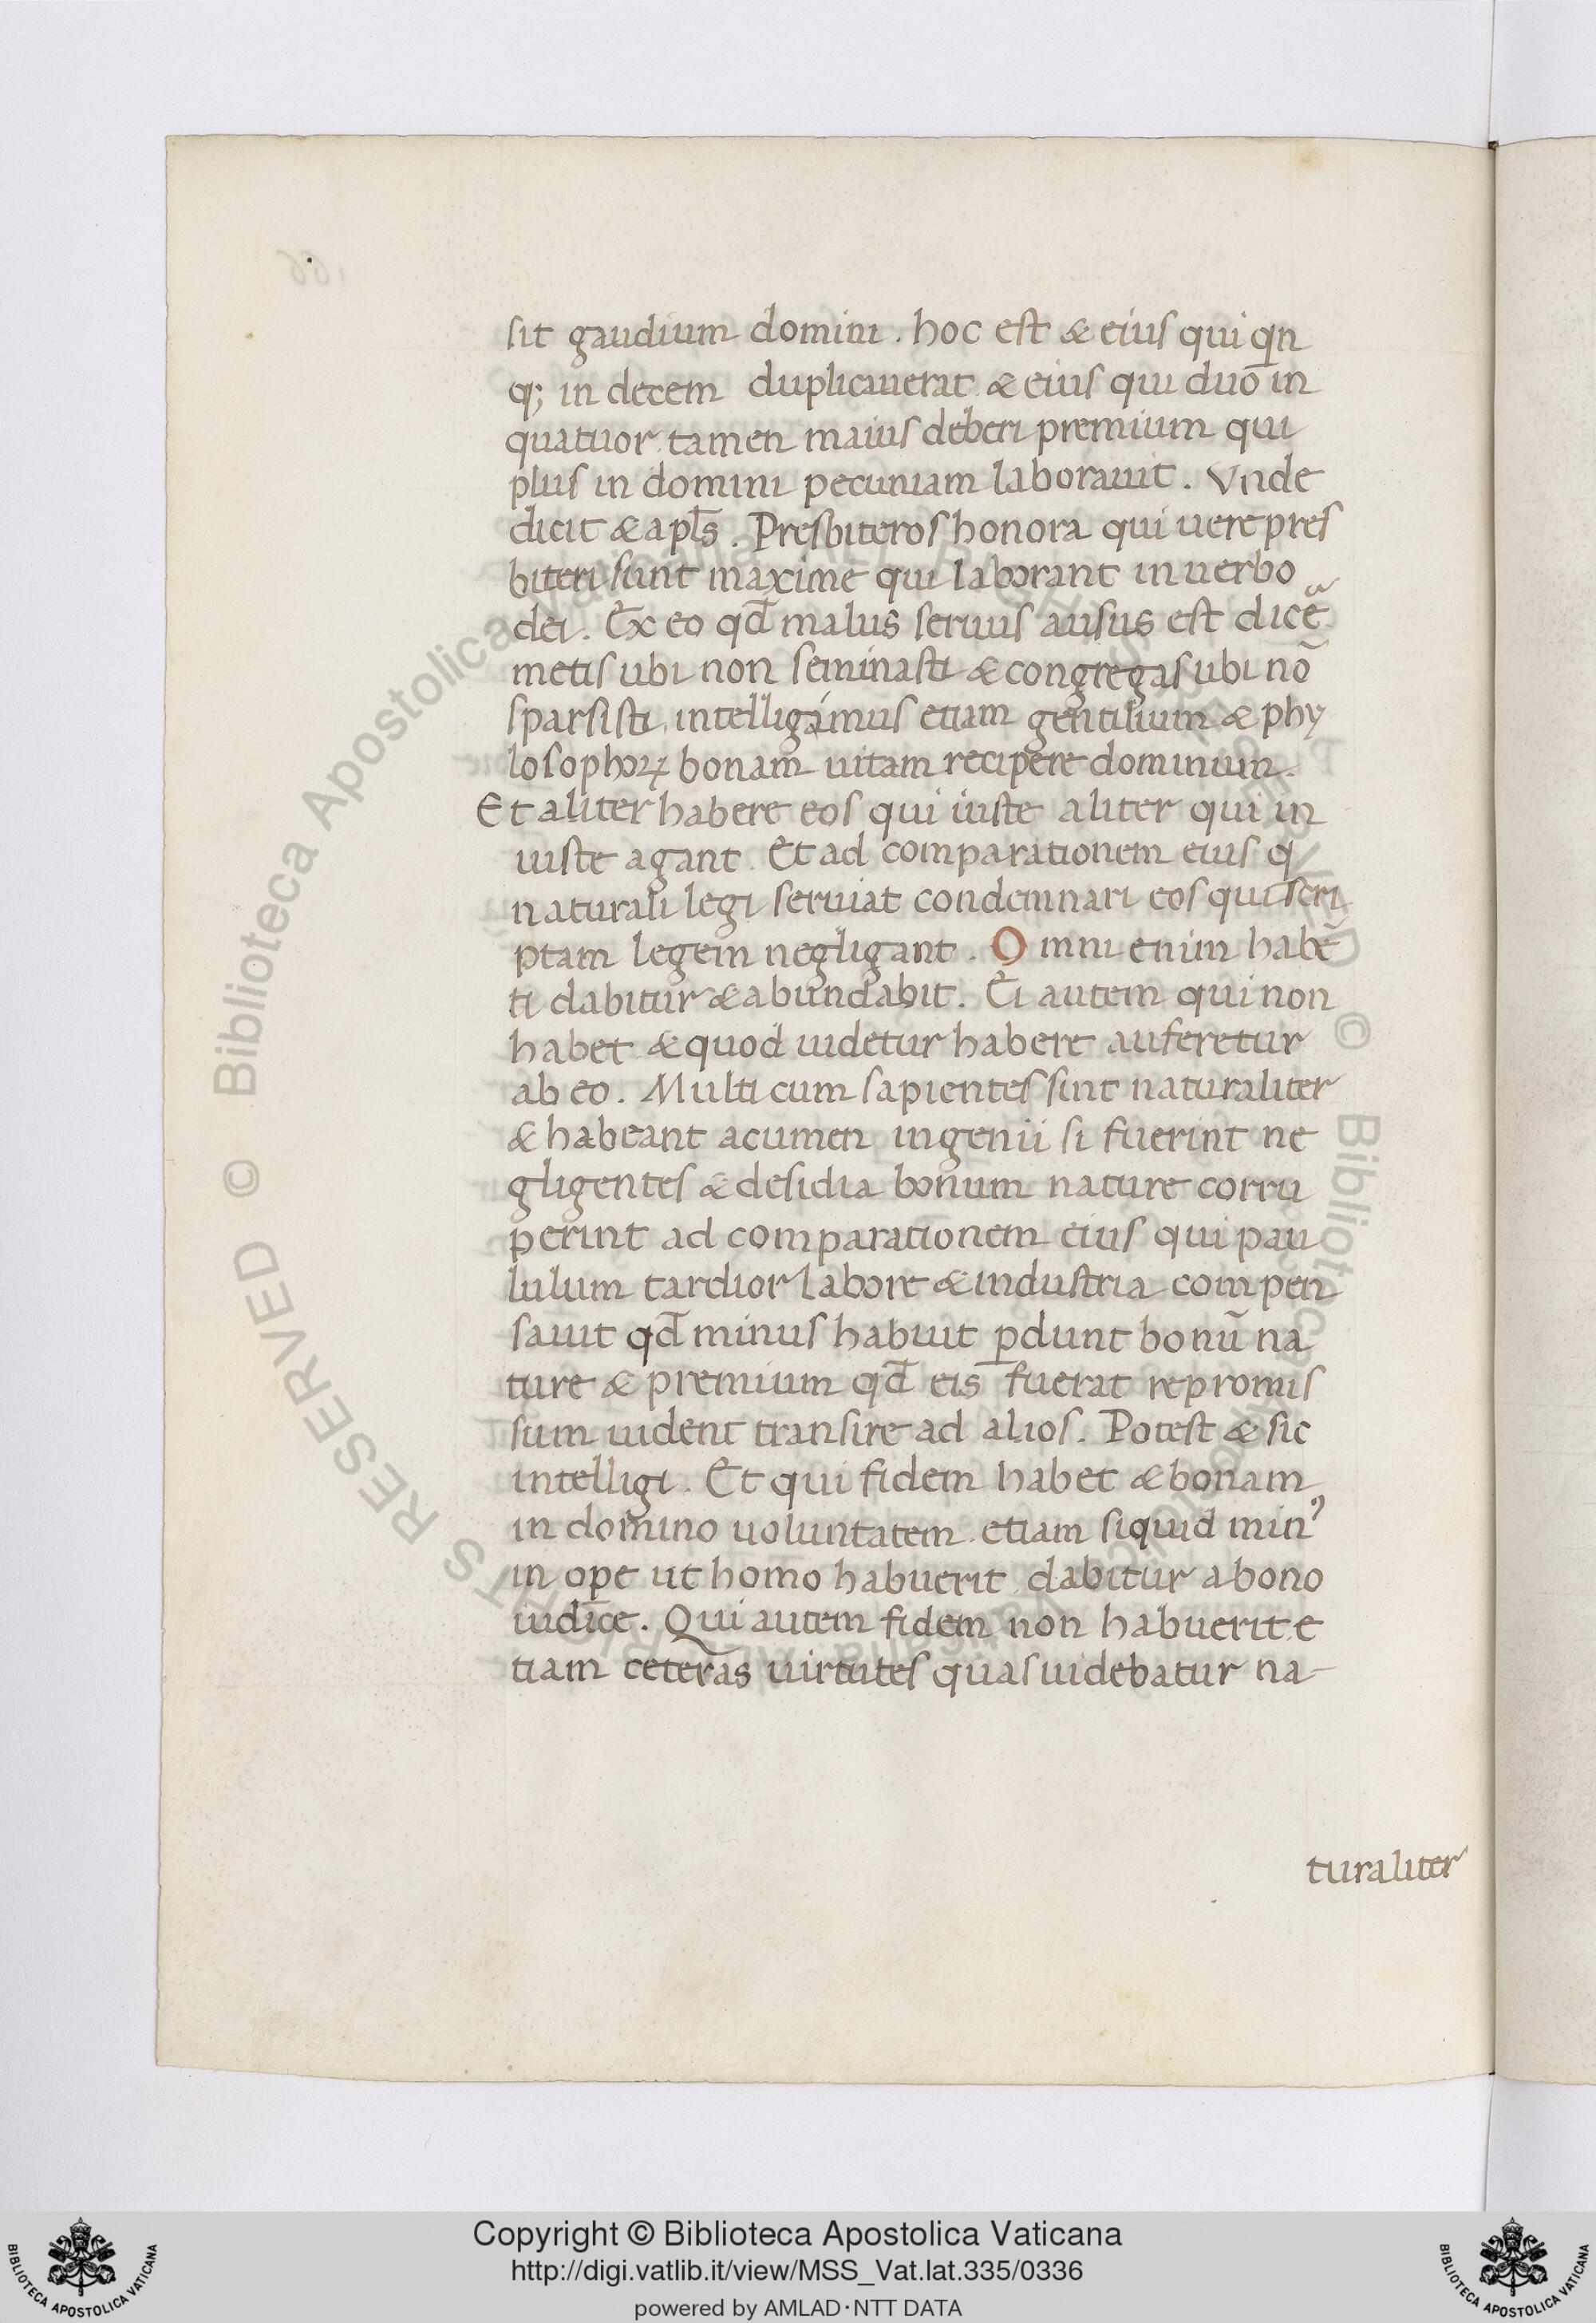 sit gaudium domini . hoc est & eius qui qn
q; in decem duplicauerat & eius qui duo in
quatuor tamen maius deberi premium qui
plus in domini pecuniam laborauit . Vnde
dicit & apl̅s . Presbiteros honora qui uere pres
biteri sunt maxime qui laborant in uerbo
dei . Ex eo qd̅ malus seruus ausus est dicē
metis ubi non seminasti & congregas ubi nō
sparsisti intelligimus etiam gentilium & phy
losophoꝝ bonam uitam recipere dominum .
Et aliter habere eos qui iuste aliter qui in
iuste agant . Et ad comparationem eius q
naturali legi seruiat condemnari eos qui scri
ptam legem negligant . Omni enim habē
ti dabitur & abundabit . Ei autem qui non
habet & quod uidetur habere auferetur
ab eo . Multi cum sapientes sint naturaliter
& habeant acumen ingenii si fuerint ne
gligentes & desidia bonum nature corru
perint ad comparationem eius qui pau
lulum tardior labore & industria compen
sauit qd̅ minus habuit ꝑdunt bonū na
ture & premium qd̅ eis fuerat repromis
sum uident transire ad alios . Potest & sic
intelligi . Et qui fidem habet & bonam
in domino uoluntatem etiam siquid minꝰ
in oꝑe ut homo habuerit dabitur a bono
iudice . Qui autem fidem non habuerit e
tiam ceteras uirtutes quas uidebatur na-
turaliter
Copyright © Biblioteca Apostolica Vaticana
http://digi.vatlib.it/view/MSS_Vat.lat.335/0336
powered by AMLAD·NTT DATA
BIBLIOTECA APOSTOLICA VATICANA
BIBLIOTECA APOSTOLICA VATICANA